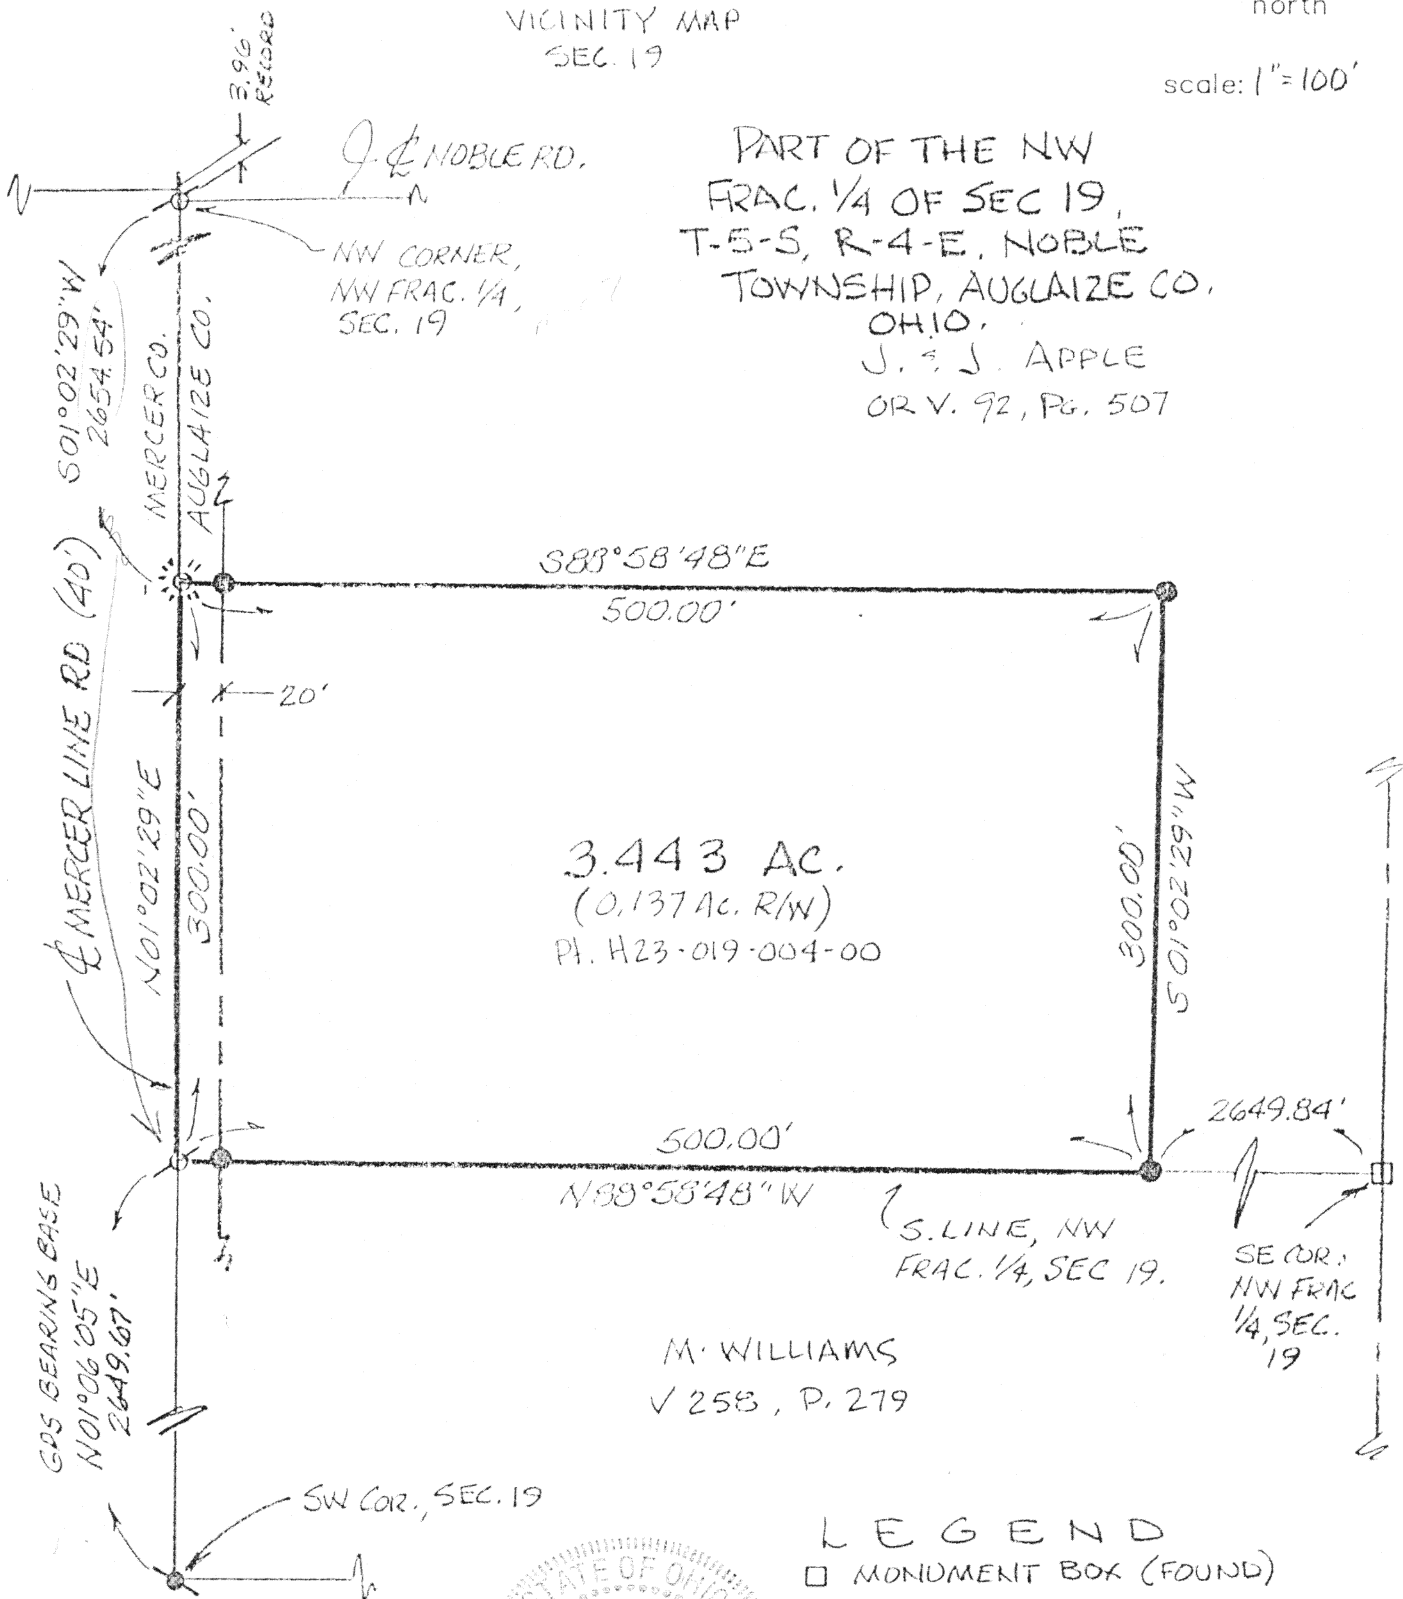 VICINITY MAP
SEC. 19
north
scale: 1"=100'
3.96'
RECORD
℄ NOBLE RD.
PART OF THE NW
FRAC. 1/4 OF SEC 19,
T-5-S, R-4-E, NOBLE
TOWNSHIP, AUGLAIZE CO.
OHIO.
J. & J. APPLE
OR V. 92, PG. 507
NW CORNER,
NW FRAC. 1/4,
SEC. 19
S01°02'29"W
2654.54'
MERCER CO.
AUGLAIZE CO.
℄ MERCER LINE RD (40')
S88°58'48"E
500.00'
20'
N01°02'29"E
300.00'
3.443 AC.
(0.137 AC. R/W)
Pt. H23-019-004-00
300.00'
S01°02'29"W
500.00'
N88°58'48"W
2649.84'
S. LINE, NW
FRAC. 1/4, SEC 19.
SE COR.
NW FRAC
1/4, SEC.
19
GPS BEARING BASE
N01°06'05"E
2649.67'
M. WILLIAMS
V 258, P. 279
SW COR., SEC. 19
STATE OF OHIO
LEGEND
□ MONUMENT BOX (FOUND)